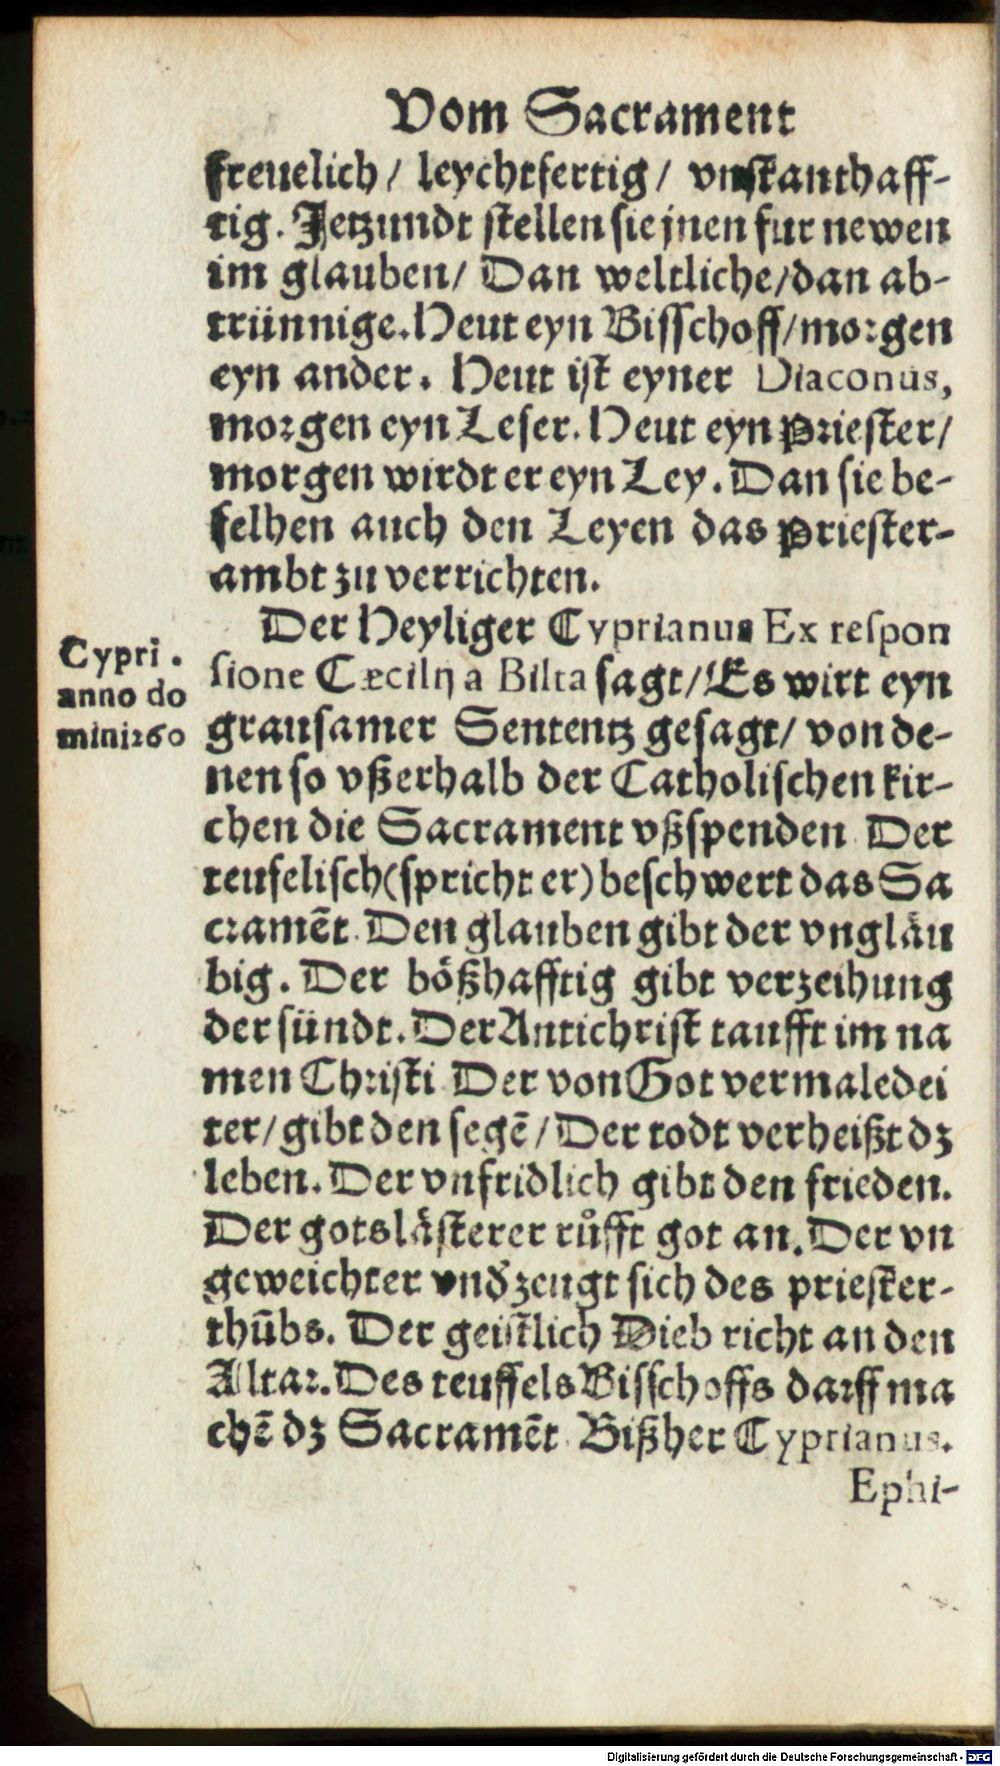 Vom Sacrament
freuelich/ leychtfertig/ vnstanthaff-
tig. Jetzundt stellen sie jnen fur newen
im glauben/ Dan weltliche/dan ab-
trünnige. Heut eyn Bisschoff/morgen
eyn ander. Heut ist eyner Diaconus,
morgen eyn Leser. Heut eyn Priester/
morgen wirdt er eyn Ley. Dan sie be-
felhen auch den Leyen das Priester-
ambt zu verrichten.
Der Heyliger Cyprianus Ex respon
sione Cæcilij a Bilta sagt/ Es wirt eyn
grausamer Sententz gesagt/ von de-
nen so vßerhalb der Catholischen kir-
chen die Sacrament vßspenden. Der
teufelisch(spricht er)beschwert das Sa
cramēt. Den glauben gibt der vngläu
big. Der bößhafftig gibt verzeihung
der sündt. Der Antichrist taufft im na
men Christi. Der von Got vermaledei
ter/ gibt den segē/ Der todt verheißt dz
leben. Der vnfridlich gibt den frieden.
Der gotslästerer růfft got an. Der vn
geweichter vnd zeugt sich des priester-
thūbs. Der geistlich Dieb richt an den
Altar. Des teuffels Bisschoffs darff ma
chē dz Sacramēt. Bißher Cyprianus.
Ephi-
Cypri.
anno do
mini 260
Digitalisierung gefördert durch die Deutsche Forschungsgemeinschaft - DFG